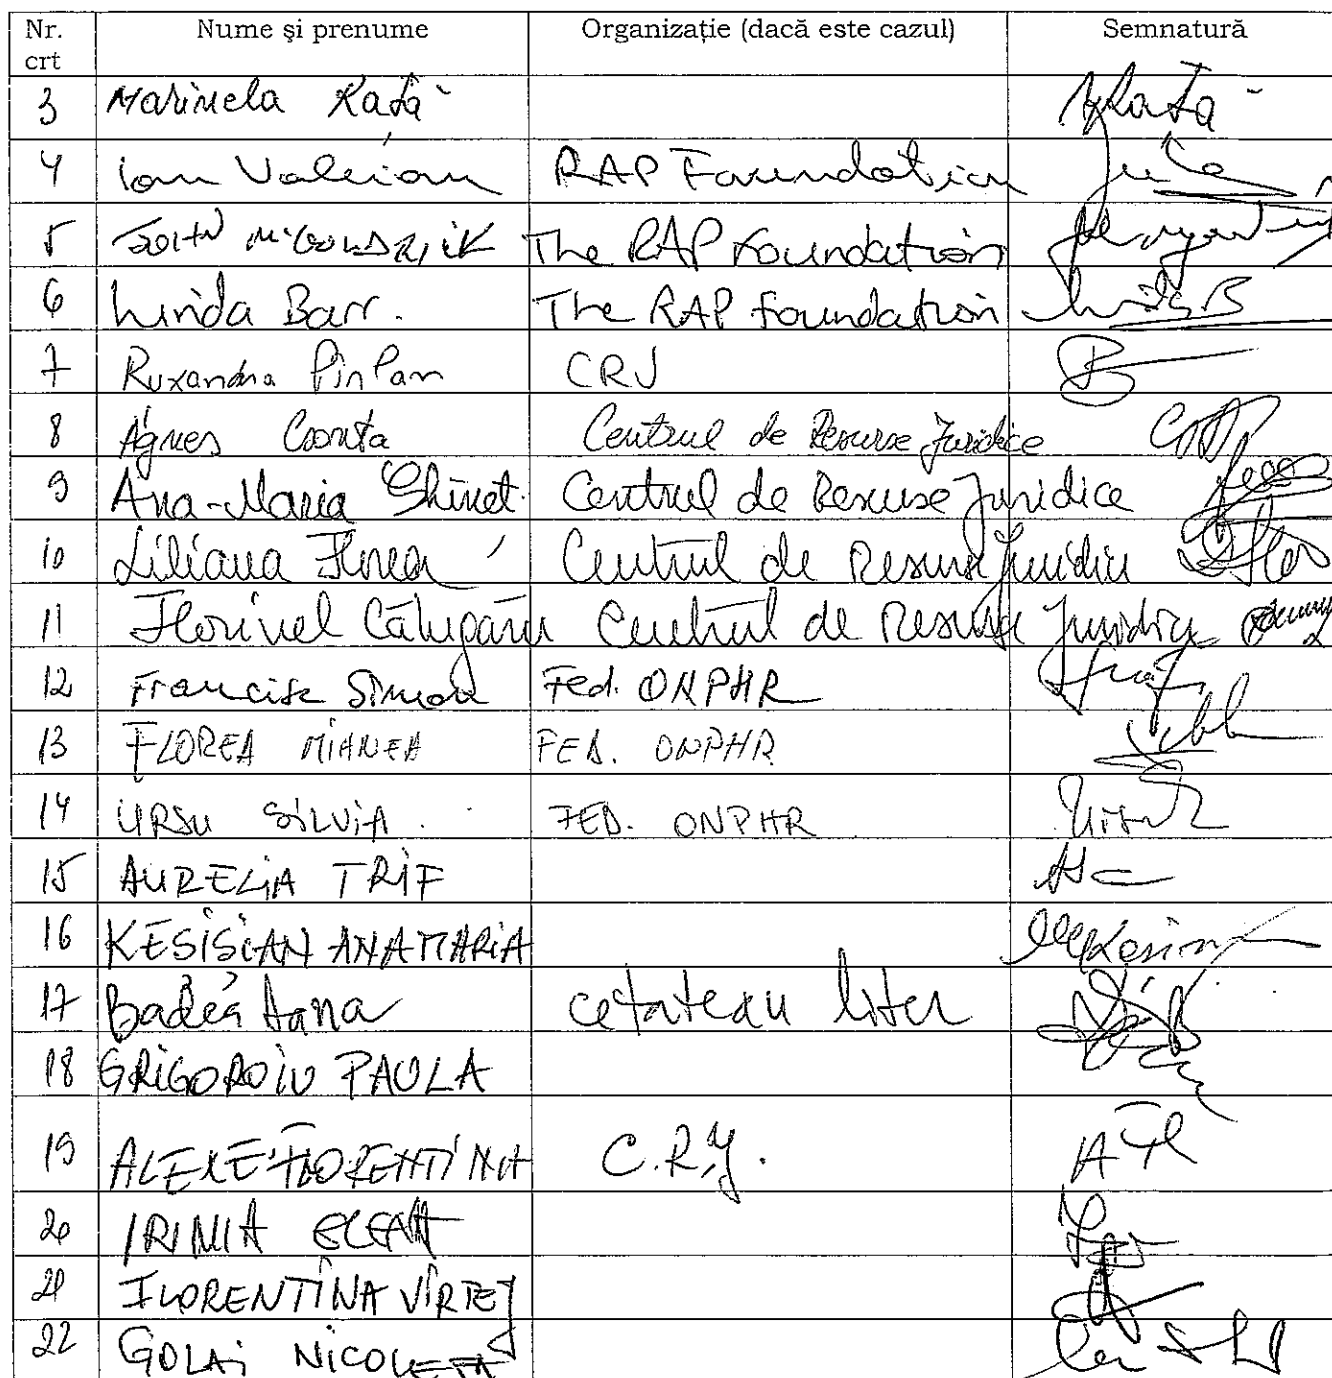 Nr. crt Nume și prenume Organizație (dacă este cazul) Semnatură
3 Marinela Rată Rată
4 Ion Valerian RAP Foundation
5 The RAP Foundation
6 Linda Barr. The RAP Foundation
7 Ruxandra CRJ
8 Ágnes Csonta Centrul de Resurse Juridice
9 Ana-Maria Ghinet Centrul de Resurse Juridice
10 Liliana Florea Centrul de Resurse Juridice
11 Florinel Centrul de Resurse Juridice
12 Francisc Simon Fed. ONPHR
13 FLOREA MIHNEA FED. ONPHR
14 URSU SILVIA FED. ONPHR
15 AURELIA TRIF
16 KESISIAN ANAMARIA
17 Badea Oana cetatean liber
18 GRIGOROIU PAULA
19 ALEXE FLORENTINA C.R.J.
20 IRIMIA
21 FLORENTINA
22 GOLAI NICOLETA